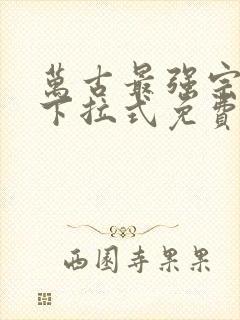 萬古最强宗
下拉式免費
西園寺果果